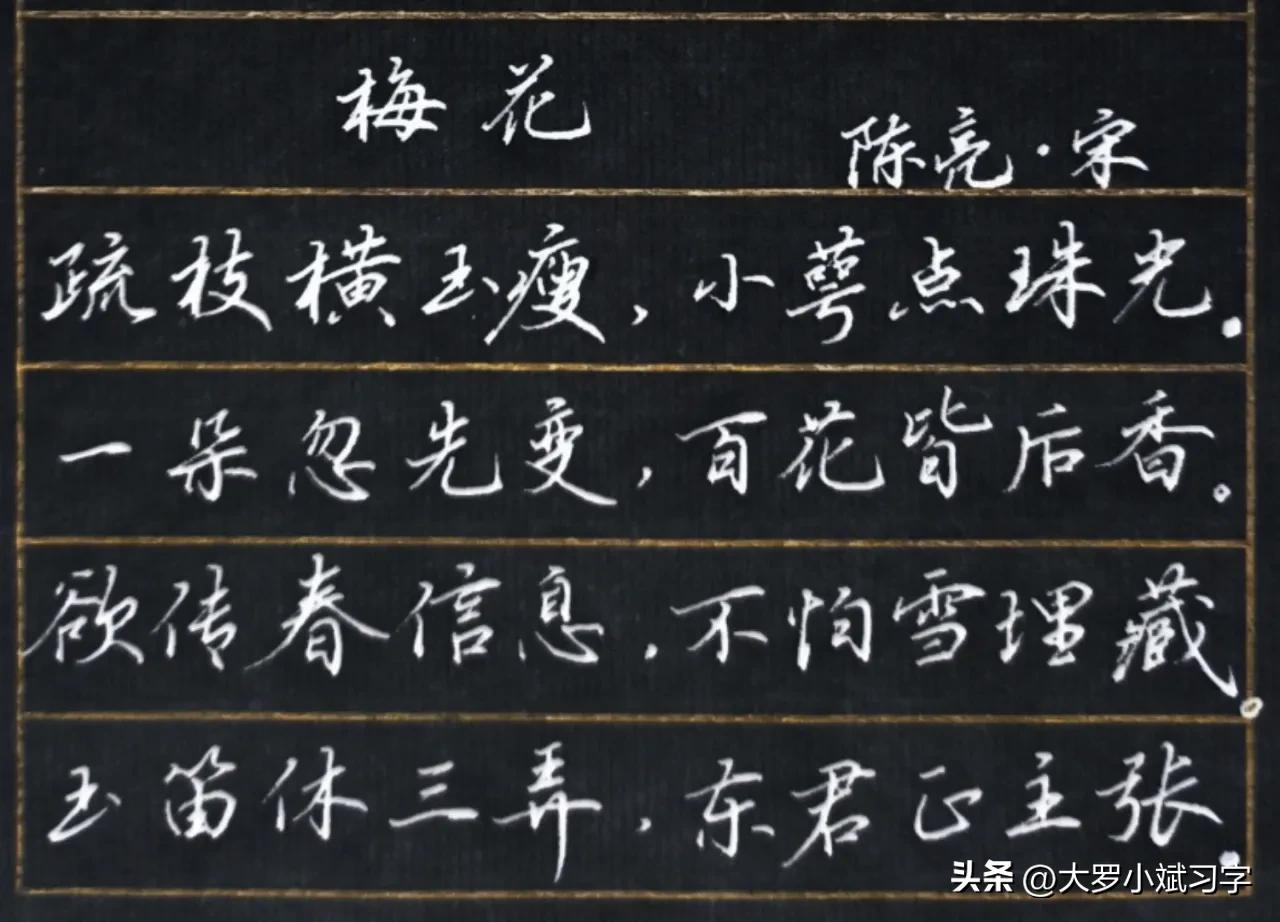 梅花
陈亮·宋
疏枝横玉瘦，小萼点珠光。
一朵忽先变，百花皆后香。
欲传春信息，不怕雪埋藏。
玉笛休三弄，东君正主张。
头条 @大罗小斌习字